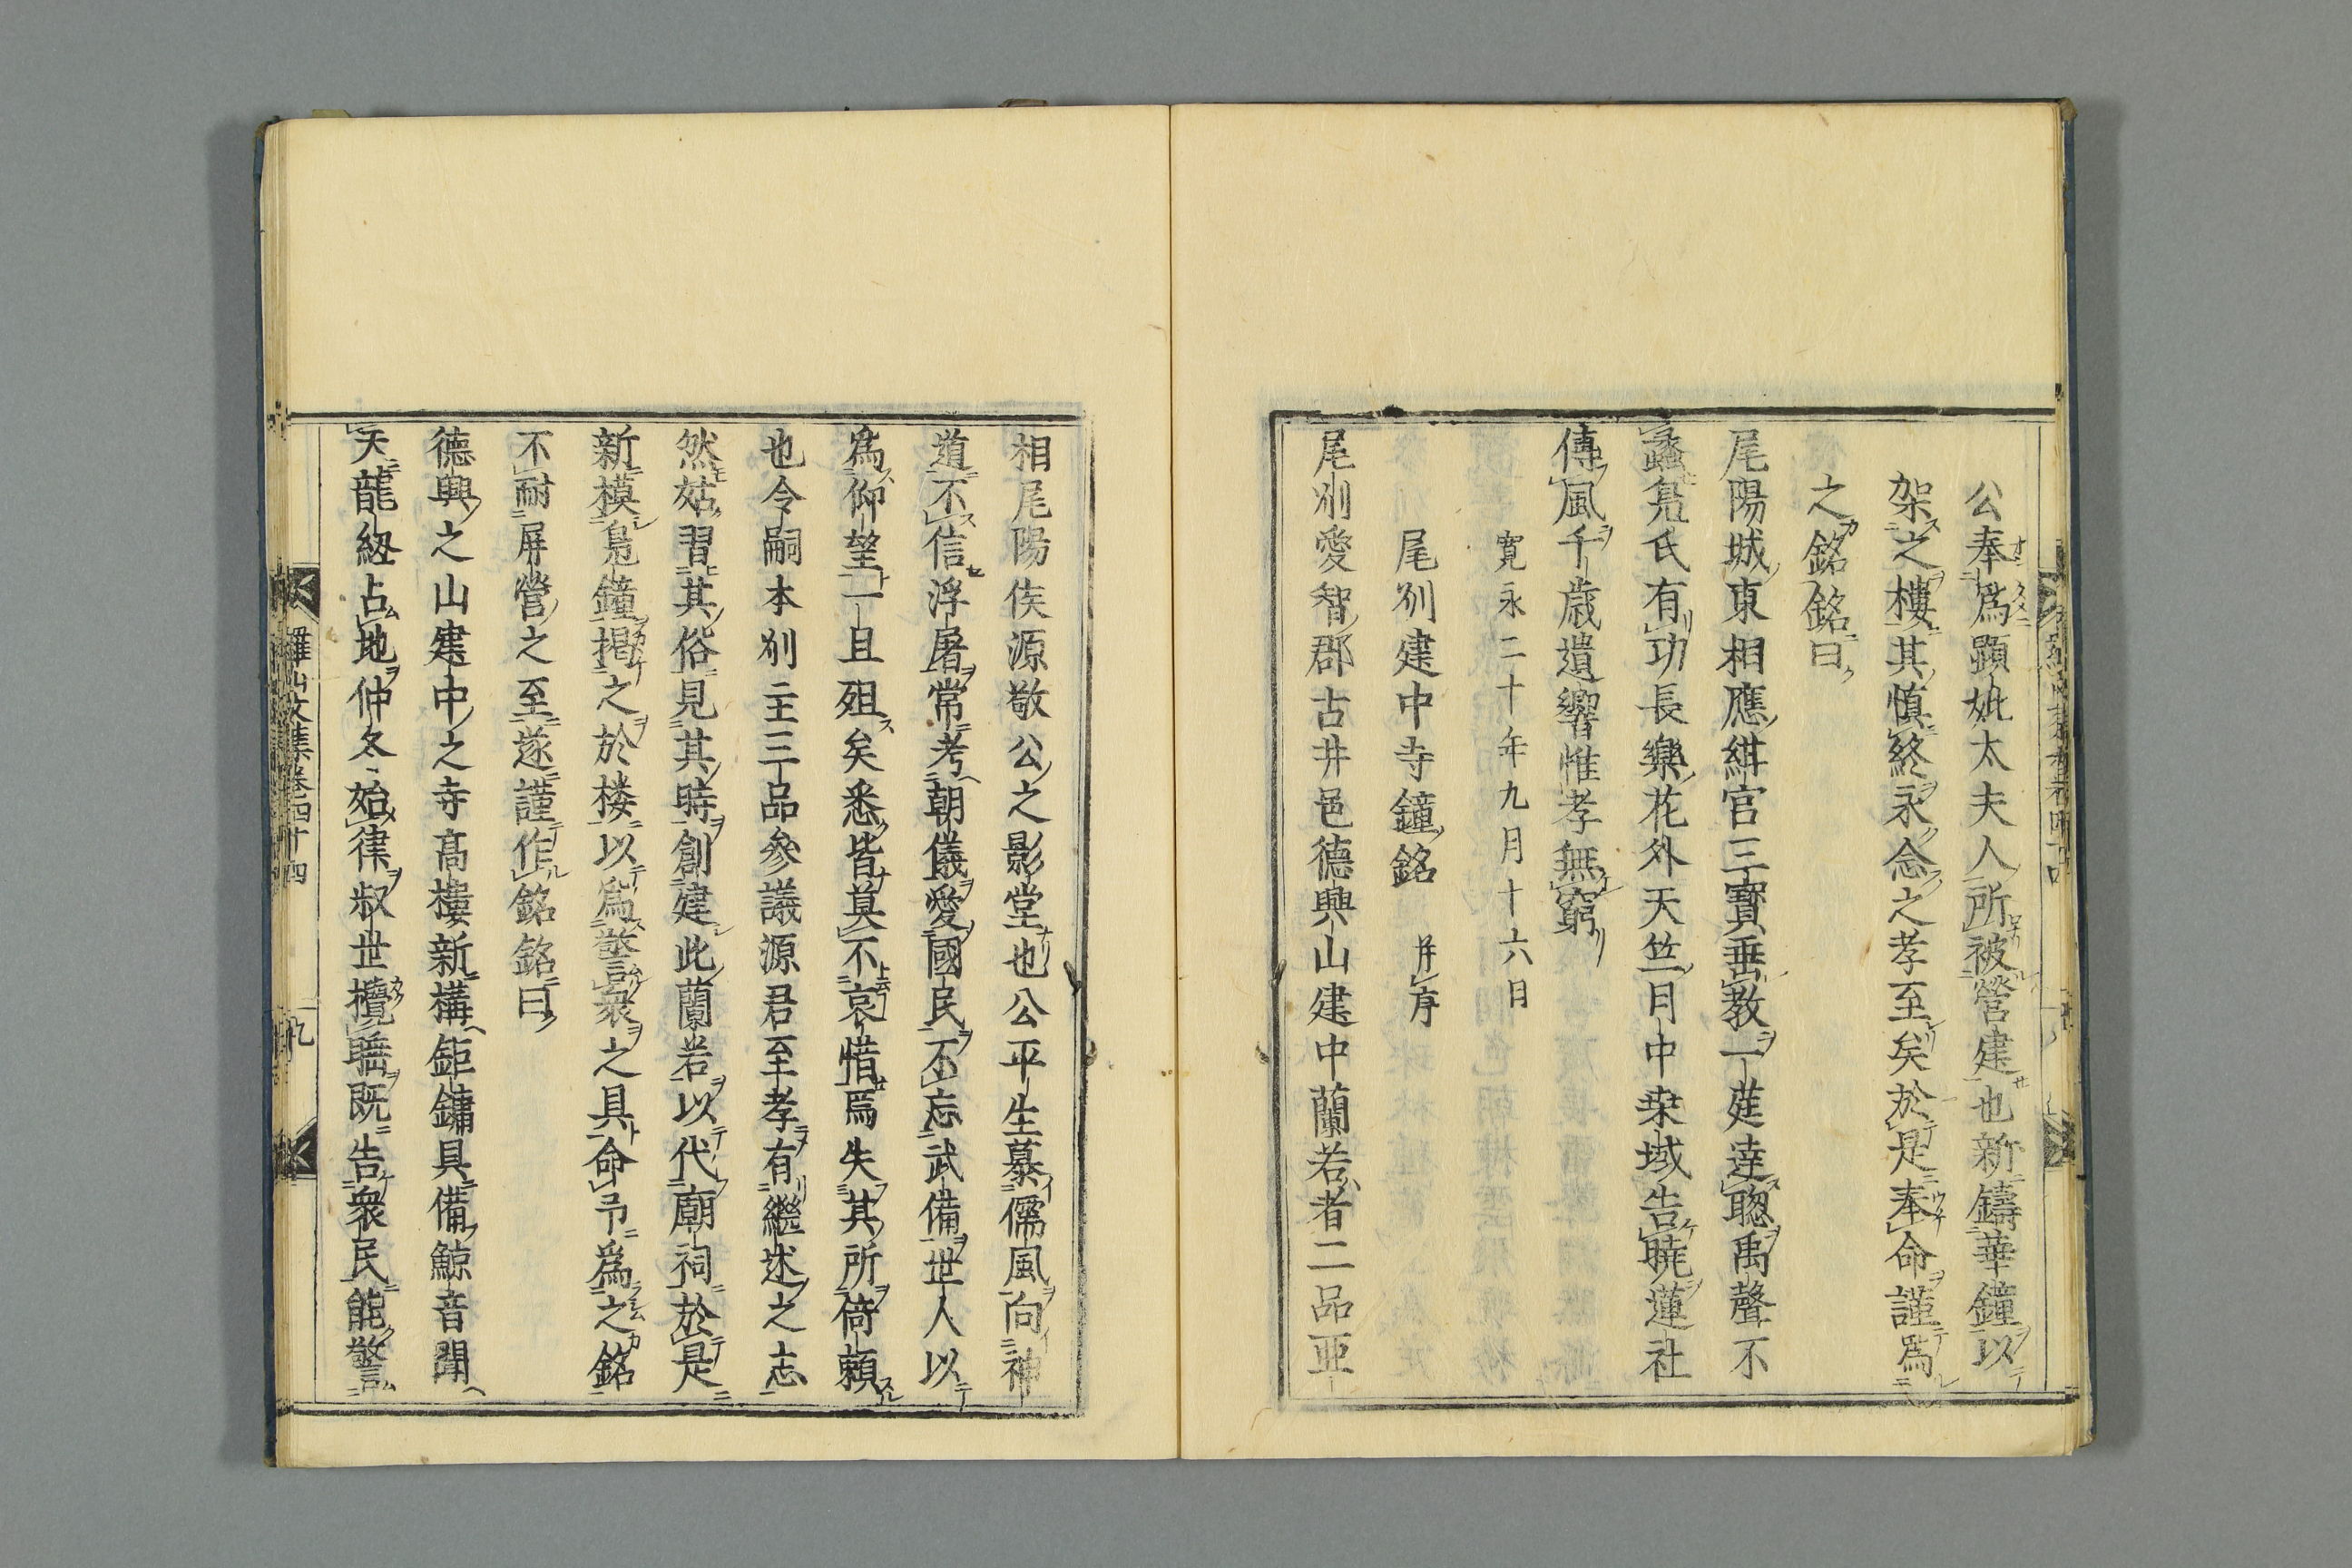 公奉爲顕妣太夫人所被營建也新鑄華鐘以
架之樓其慎終永念之孝至矣於是奉命謹爲
之銘銘曰
尾陽城東相應紺宮三寶垂教一莛達聰禹聲不
蠡鳬氏有功長樂花外天竺月中桒域告曉蓮社
傳風千歳遺響惟孝無窮
寛永二十年九月十六日
尾刕建中寺鐘銘 并序
尾刕愛智郡古井邑德興山建中蘭若者二品亜
相尾陽侯源敬公之影堂也公平生慕儒風向神
道不信浮屠常考朝儀愛國民不忘武備世人以
爲仰望一旦殂矣悉皆莫不哀惜焉失其所倚頼
也令嗣本刕主三品參議源君至孝有繼述之志
然姑習其俗見其時創建此蘭若以代廟祠於是
新模鳬鐘掲之於楼以爲警衆之具命予爲之銘
不耐屏營之至遂謹作銘銘曰
德興之山建中之寺高樓新構鉅鏞具備鯨音聞
天龍紐占地仲冬始律叔世攪睡既告衆民能警
羅山文集卷四十四
九